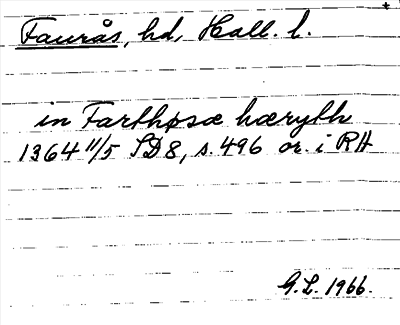 Faurås, hd, Hall. l.
in Farthøsæ hæryth
1364 11/5 SD 8, s. 496 or. i RH
G.L. 1966.